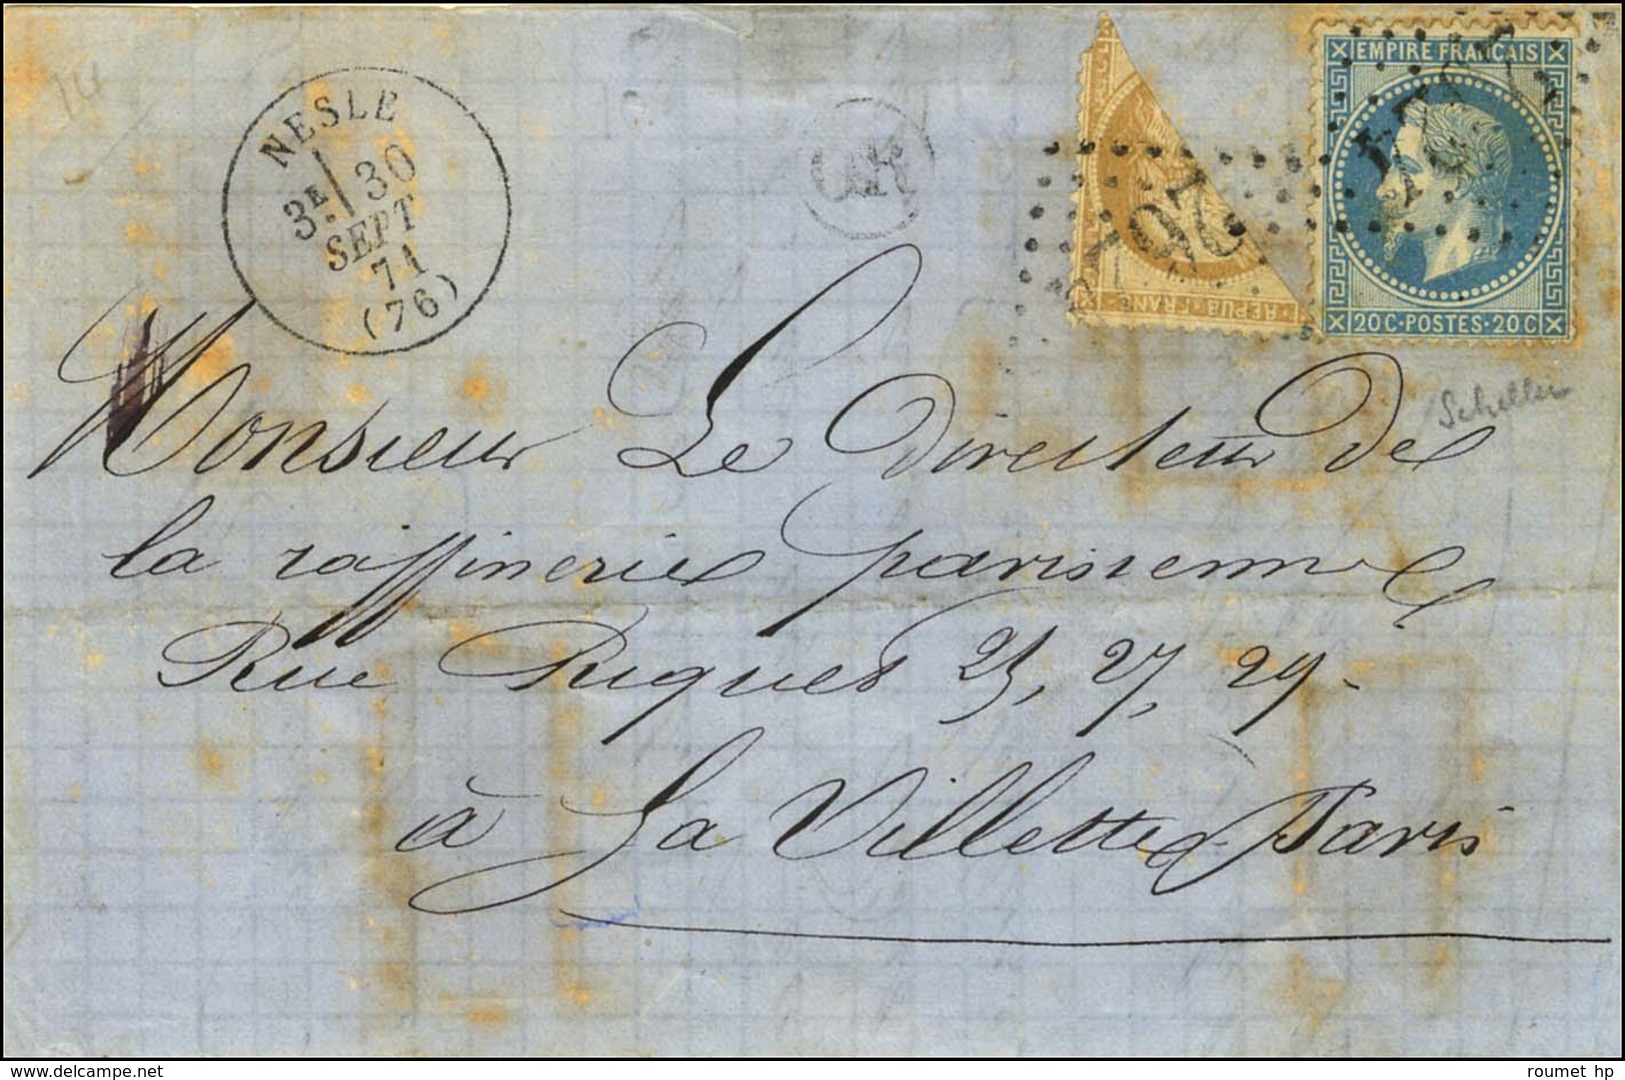 NESLE
3E 30
SEPT
71
(76)
OR
REPUB FRANC
EMPIRE FRANÇAIS
20 C·POSTES·20 C
Scheller
Monsieur Le Directeur de
la raffinerie parisienne
Rue Riquet 25, 27, 29
à La Villette Paris
www.delcampe.net
roumet hp